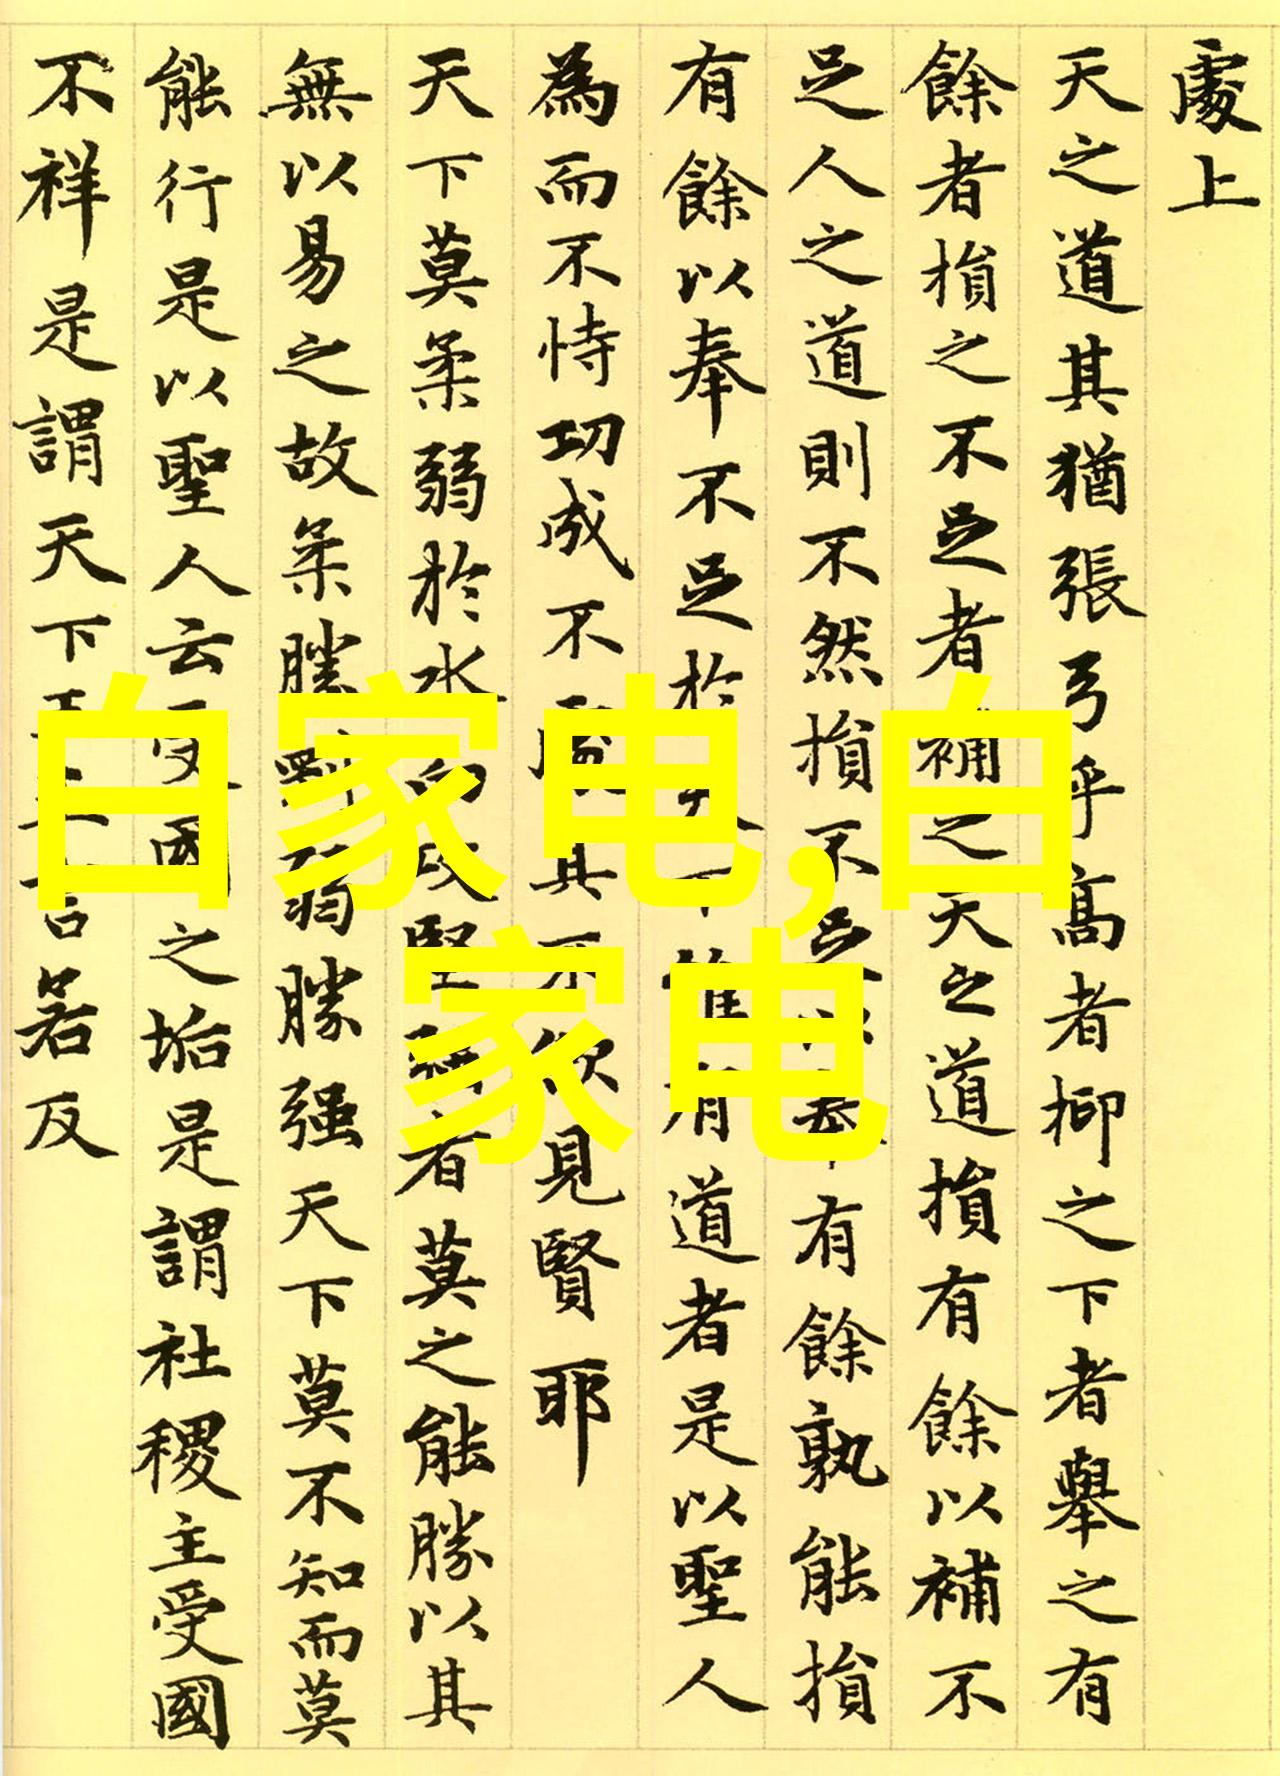 處上
天之道其猶張弓乎高者抑之下者舉之有
餘者損之不足者補之天之道損有餘以補不
足人之道則不然損不足以奉有餘孰能損
有餘以奉不足於天下有道者是以聖人
為而不恃功成不處其不欲見賢耶
天下莫柔弱於水攻堅強者莫之能勝以其
無以易之故柔勝剛弱勝强天下莫不知而莫
能行是以聖人云受國之垢是謂社稷主受國
不祥是謂天下言若反
白家电,白
家电